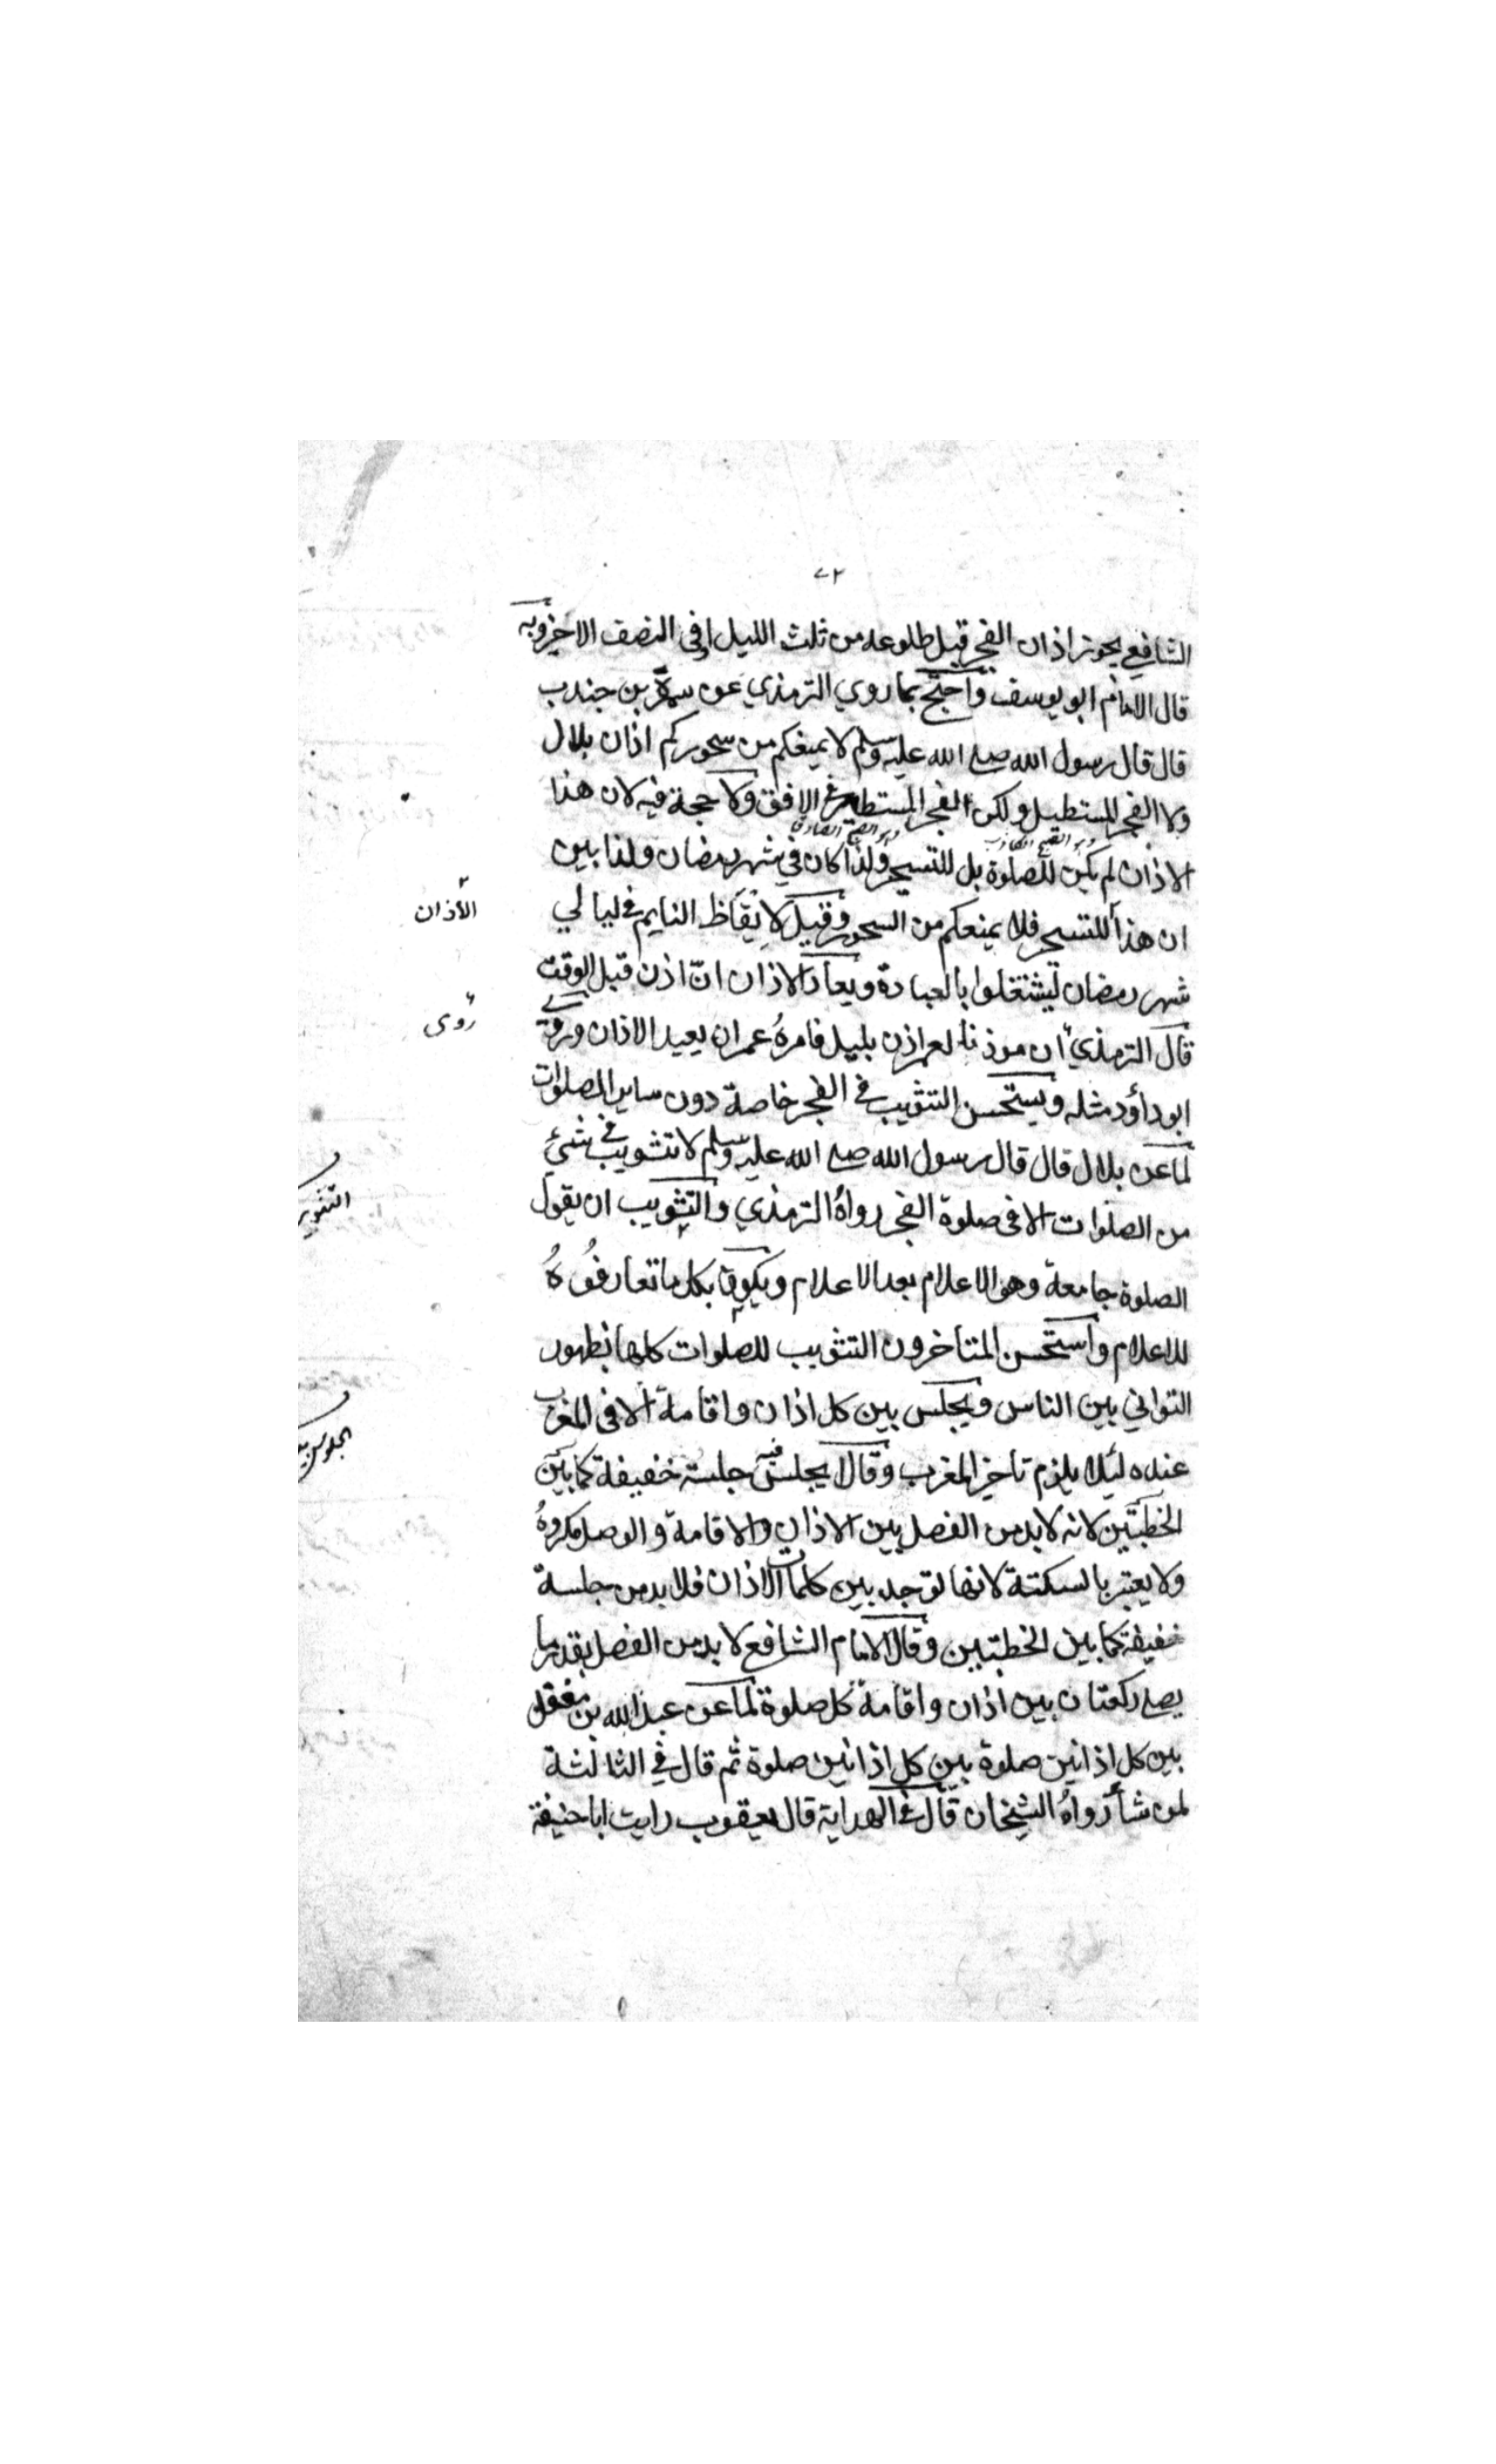 ٧٢
الشافعي يجوز اذان الفجر قبل طلوعه من ثلث الليل او في النصف الاخير وبه
قال الامام ابو يوسف واحتج بما روي الترمذي عن سمرة بن جندب
قال قال رسول الله صلے الله عليه وسلم لا يمنعكم من سحوركم اذان بلال
ولا الفجر المستطيل ولكن الفجر المستطير في الافق ولا حجة فيه لان هذا
وهو الصبح الكاذب وهو الصبح الصادق
الاذان لم يكن للصلوة بل للتسحر ولذا كان في شهر رمضان ولذا بين
ان هذا للتسحر فلا يمنعكم من السحور وقيل لايقاظ النايم في ليالي
الأذان
شهر رمضان ليشتغلوا بالعبادة ويعاد الاذان ان اذن قبل الوقت
قال الترمذي ان موذنا لعمر اذن بليل فامره عمر ان يعيد الاذان وروے
روى
ابو داؤد مثله ويستحسن التثويب في الفجر خاصة دون ساير الصلوات
لما عن بلال قال قال رسول الله صلے الله عليه وسلم لا تثويب في شئ
من الصلوات الا في صلوة الفجر رواه الترمذي والتثويب ان يقول
التثويب
الصلوة جامعة وهو الاعلام بعد الاعلام ويكون بكل ما تعارفُوهُ
للاعلام واستحسن المتاخرون التثويب للصلوات كلها لظهور
التواني بين الناس ويجلس بين كل اذان واقامة الا في المغرب
الجلوس بين
عنده لئلا يلزم تاخير المغرب وقالا يجلس فيه جلسة خفيفة كما بين
الخطبتين لانه لا بد من الفصل بين الاذان والاقامة والوصل مكروهُ
ولا يعتبر بالسكتة لانها توجد بين كلمات الاذان فلا بد من جلسة
خفيفة كما بين الخطبتين وقال الامام الشافع لا بد من الفصل بقدر ما
يصلے ركعتان بين اذان واقامة كل صلوة لما عن عبد الله بن مغفل
بين كل اذانين صلوة بين كل اذانين صلوة ثم قال في الثالثة
لمن شاء رواهُ الشيخان قال في الهداية قال يعقوب رايت ابا حنيفة